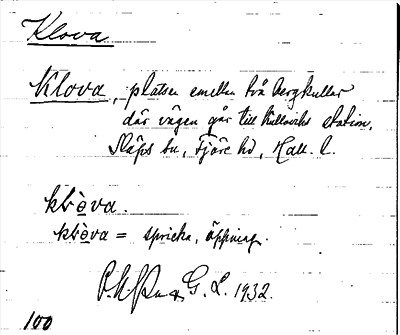 Klova
Klova, platsen emellan två bergkullar
där vägen går till Kullaviks station,
Släps sn, Fjäre hd, Hall. l.
klòva.
klòva = spricka, öppning.
G. L. 1932.
100